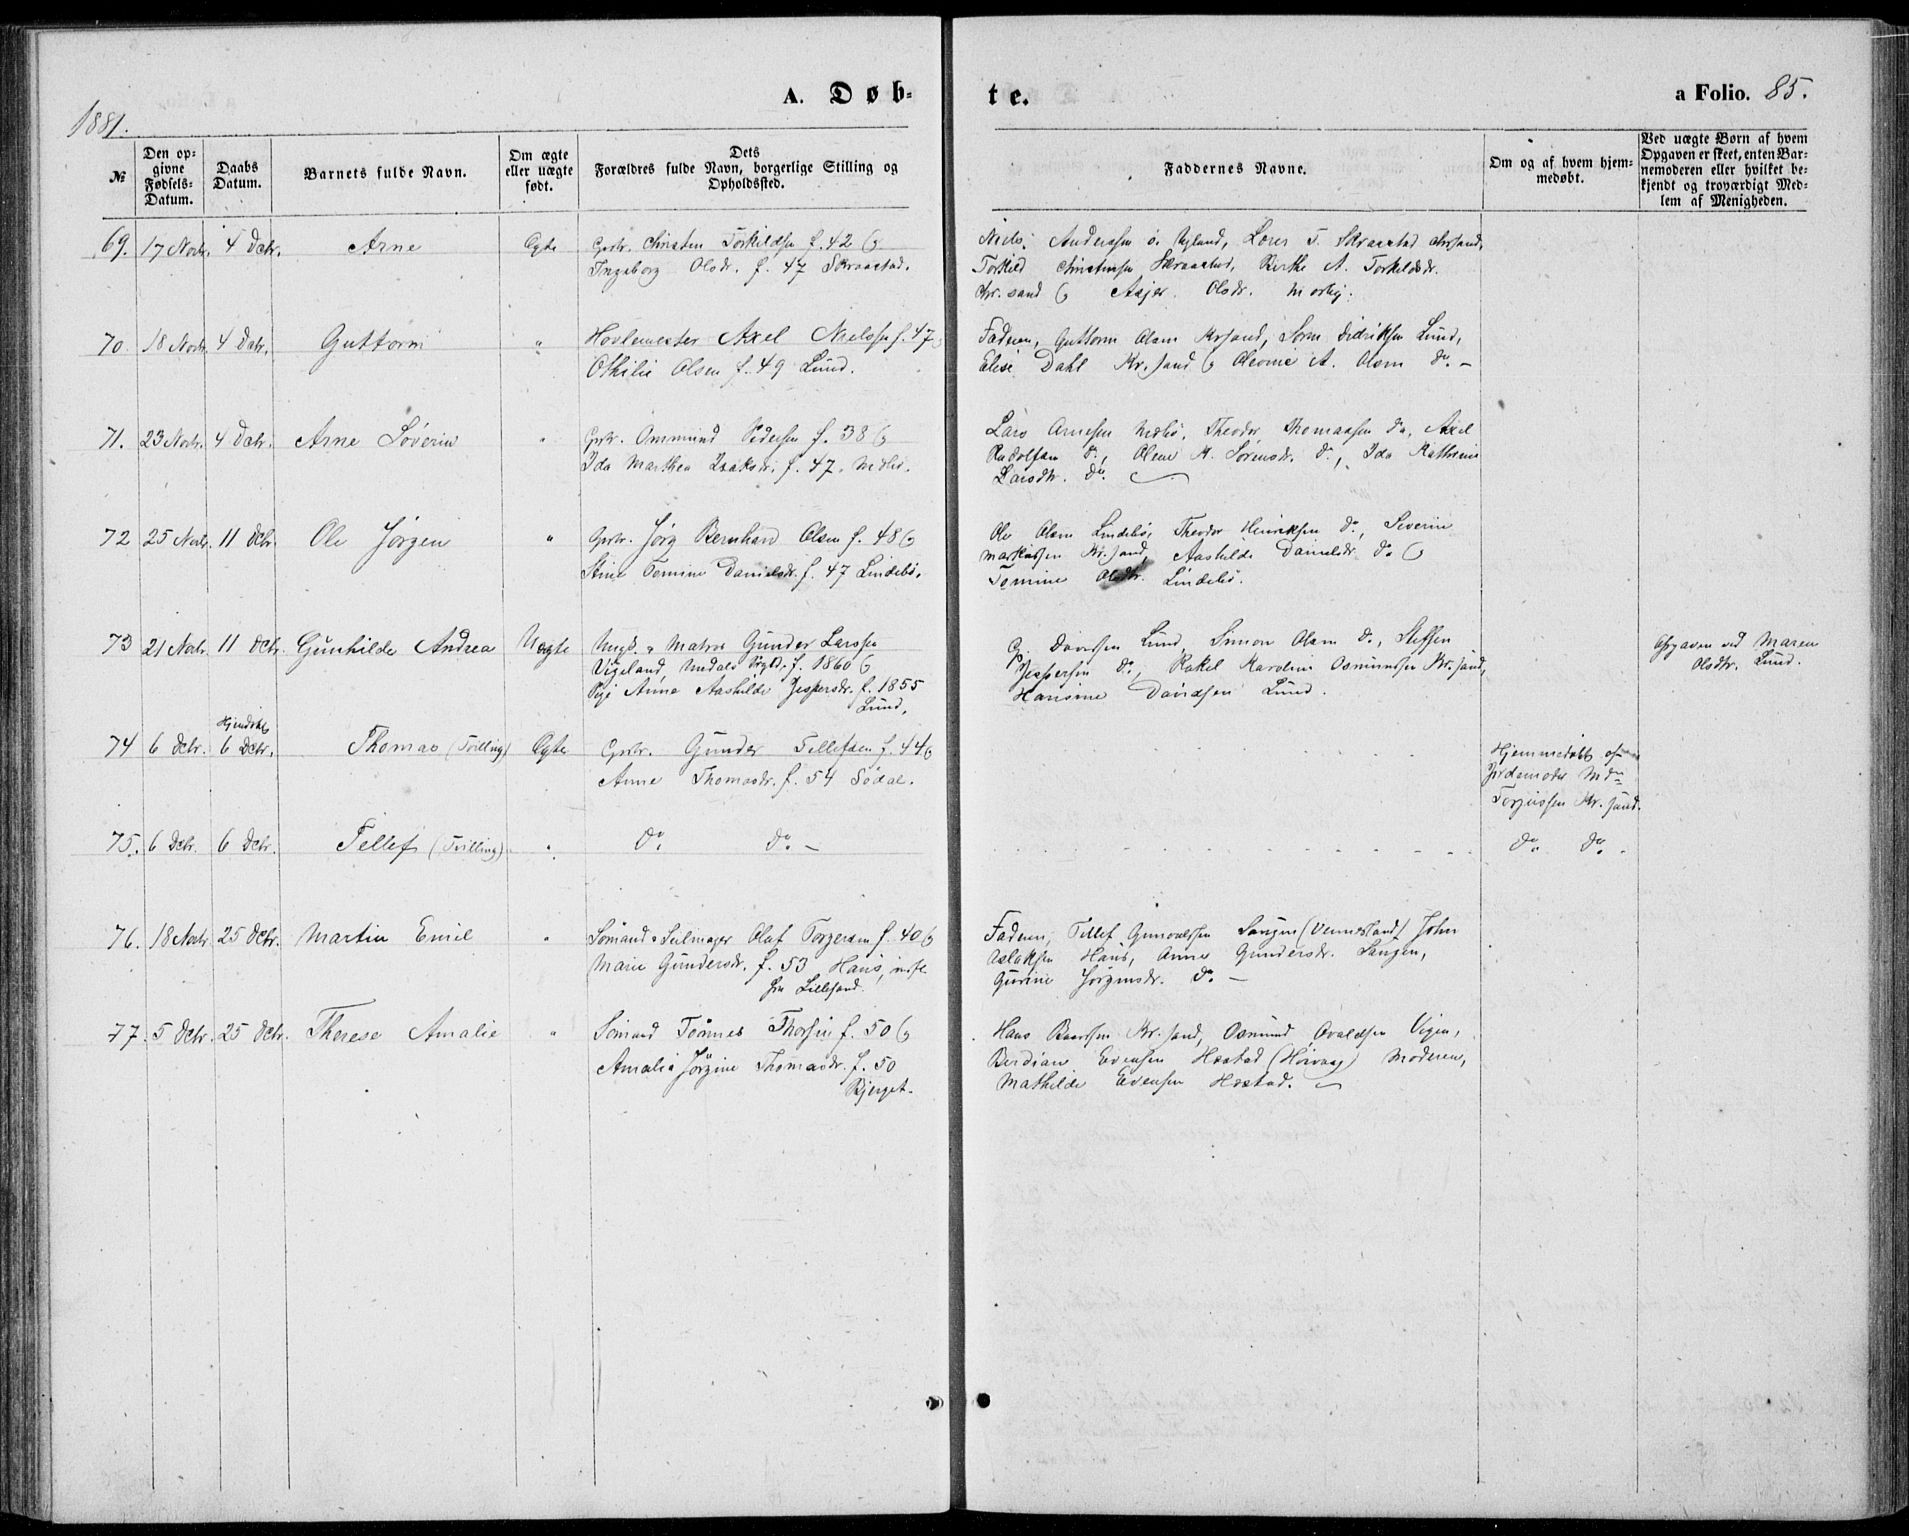 1881.
A. Døb-
te.
a Folio. 85.
№
Den op-
givne
Fødsels-
Datum.
Daabs
Datum.
Barnets fulde Navn.
Om ægte
eller uægte
født.
Dets
Forældres fulde Navn, borgerlige Stilling og
Opholdssted.
Faddernes Navne.
Om og af hvem hjem-
medøbt.
Ved uægte Børn af hvem
Opgaven er skeet, enten Bar-
nemoderen eller hvilket be-
kjendt og troværdigt Med-
lem af Menigheden.
69. 17 Novbr. 4 Dcbr. Arne Ægte Gmbr. Christen Torkildsen f. 42 &
Ingeborg Olsdr. f. 47 Skraastad.
Niels Anderssen Lars T. Skraastad Chrsand,
Torkild Christensen Skraastad, Birthe A. Torkildsdr.
Chr.sand & Olsdr.
70. 18 Novbr. 4 Dcbr. Guttorm " Axel Nielsen f. 47 &
Othilie Olsen f. 49 Lund.
Faderen, Guttorm Olsen Krsand, Søren Didriksen Lund,
Elise Dahl Kr.sand & A. Olsen do. -
71. 23 Novbr. 4 Dcbr. Arne Søverin " Gmbr. Ommund Pedersen f. 38 &
Ida Marthea Isaksdr. f. 47,
Lars Arnesen Theodor Thomassen do, Axel
Rudolfsen do, Olene M. Sørensdr. do, Ida Kathrine
Larsdtr. do.
72 25 Novbr. 11 Dcbr. Ole Jørgen " Gmbr. Jørg Bernhard Olsen f. 48 &
Stine Tomine Danielsdr. f. 47 Lindebø.
Ole Olsen Lindebø, Theodor Henriksen do, Severin
Markussen Kr.sand, Aashilde Danielsdr. do &
Tomine Olsdtr. Lindebø.
73 21 Novbr. 11 Dcbr. Gunhilde Andrea Uægte Ungk. Matros Gunder Larssen
Vigeland, f. 1860 &
Pige Anne Aashilde Jespersdr. f. 1855
Lund.
Davidsen Lund, Simon Olsen do, Steffen
Jespersen do, Rakel Karoline Osmundsen Kr.sand,
Hansine Davidsen Lund.
Opgaven ved Maren
Olsdtr. Lund.
74 6 Dcbr. 6 Dcbr. Thomas (Tvilling) Ægte Gmbr. Gunder Tellefsen f. 44 &
Anne Thomasdr. f. 54 Sødal.
Hjemmedøbt af
Jordemoder
Torjussen Kr.sand.
75. 6 Dcbr. 6 Dcbr. Tellef (Tvilling) " do. do. -
do. do.
76. 18 Novbr. 25 Dcbr. Martin Emil " Sømand & Seilmager Olaf Torgersen f. 40 &
Marie Gundersdr. f. 53
fra Lillesand.
Faderen, Tellef Gunvaldsen Langen (Vennesland) John
Aslaksen Anne Gundersdr. Langen,
Gurine Jørgensdr. do. -
77. 5 Dcbr. 25 Dcbr. Therese Amalie " Sømand Tønnes f. 50 &
Amalia Jørgine Thomasdr. f. 50
Bjerget.
Hans Kr.sand, Osmund Vigen,
Berdian Evensen Hæstad (Høivaag) Moderen,
Mathilde Evensen Hæstad.